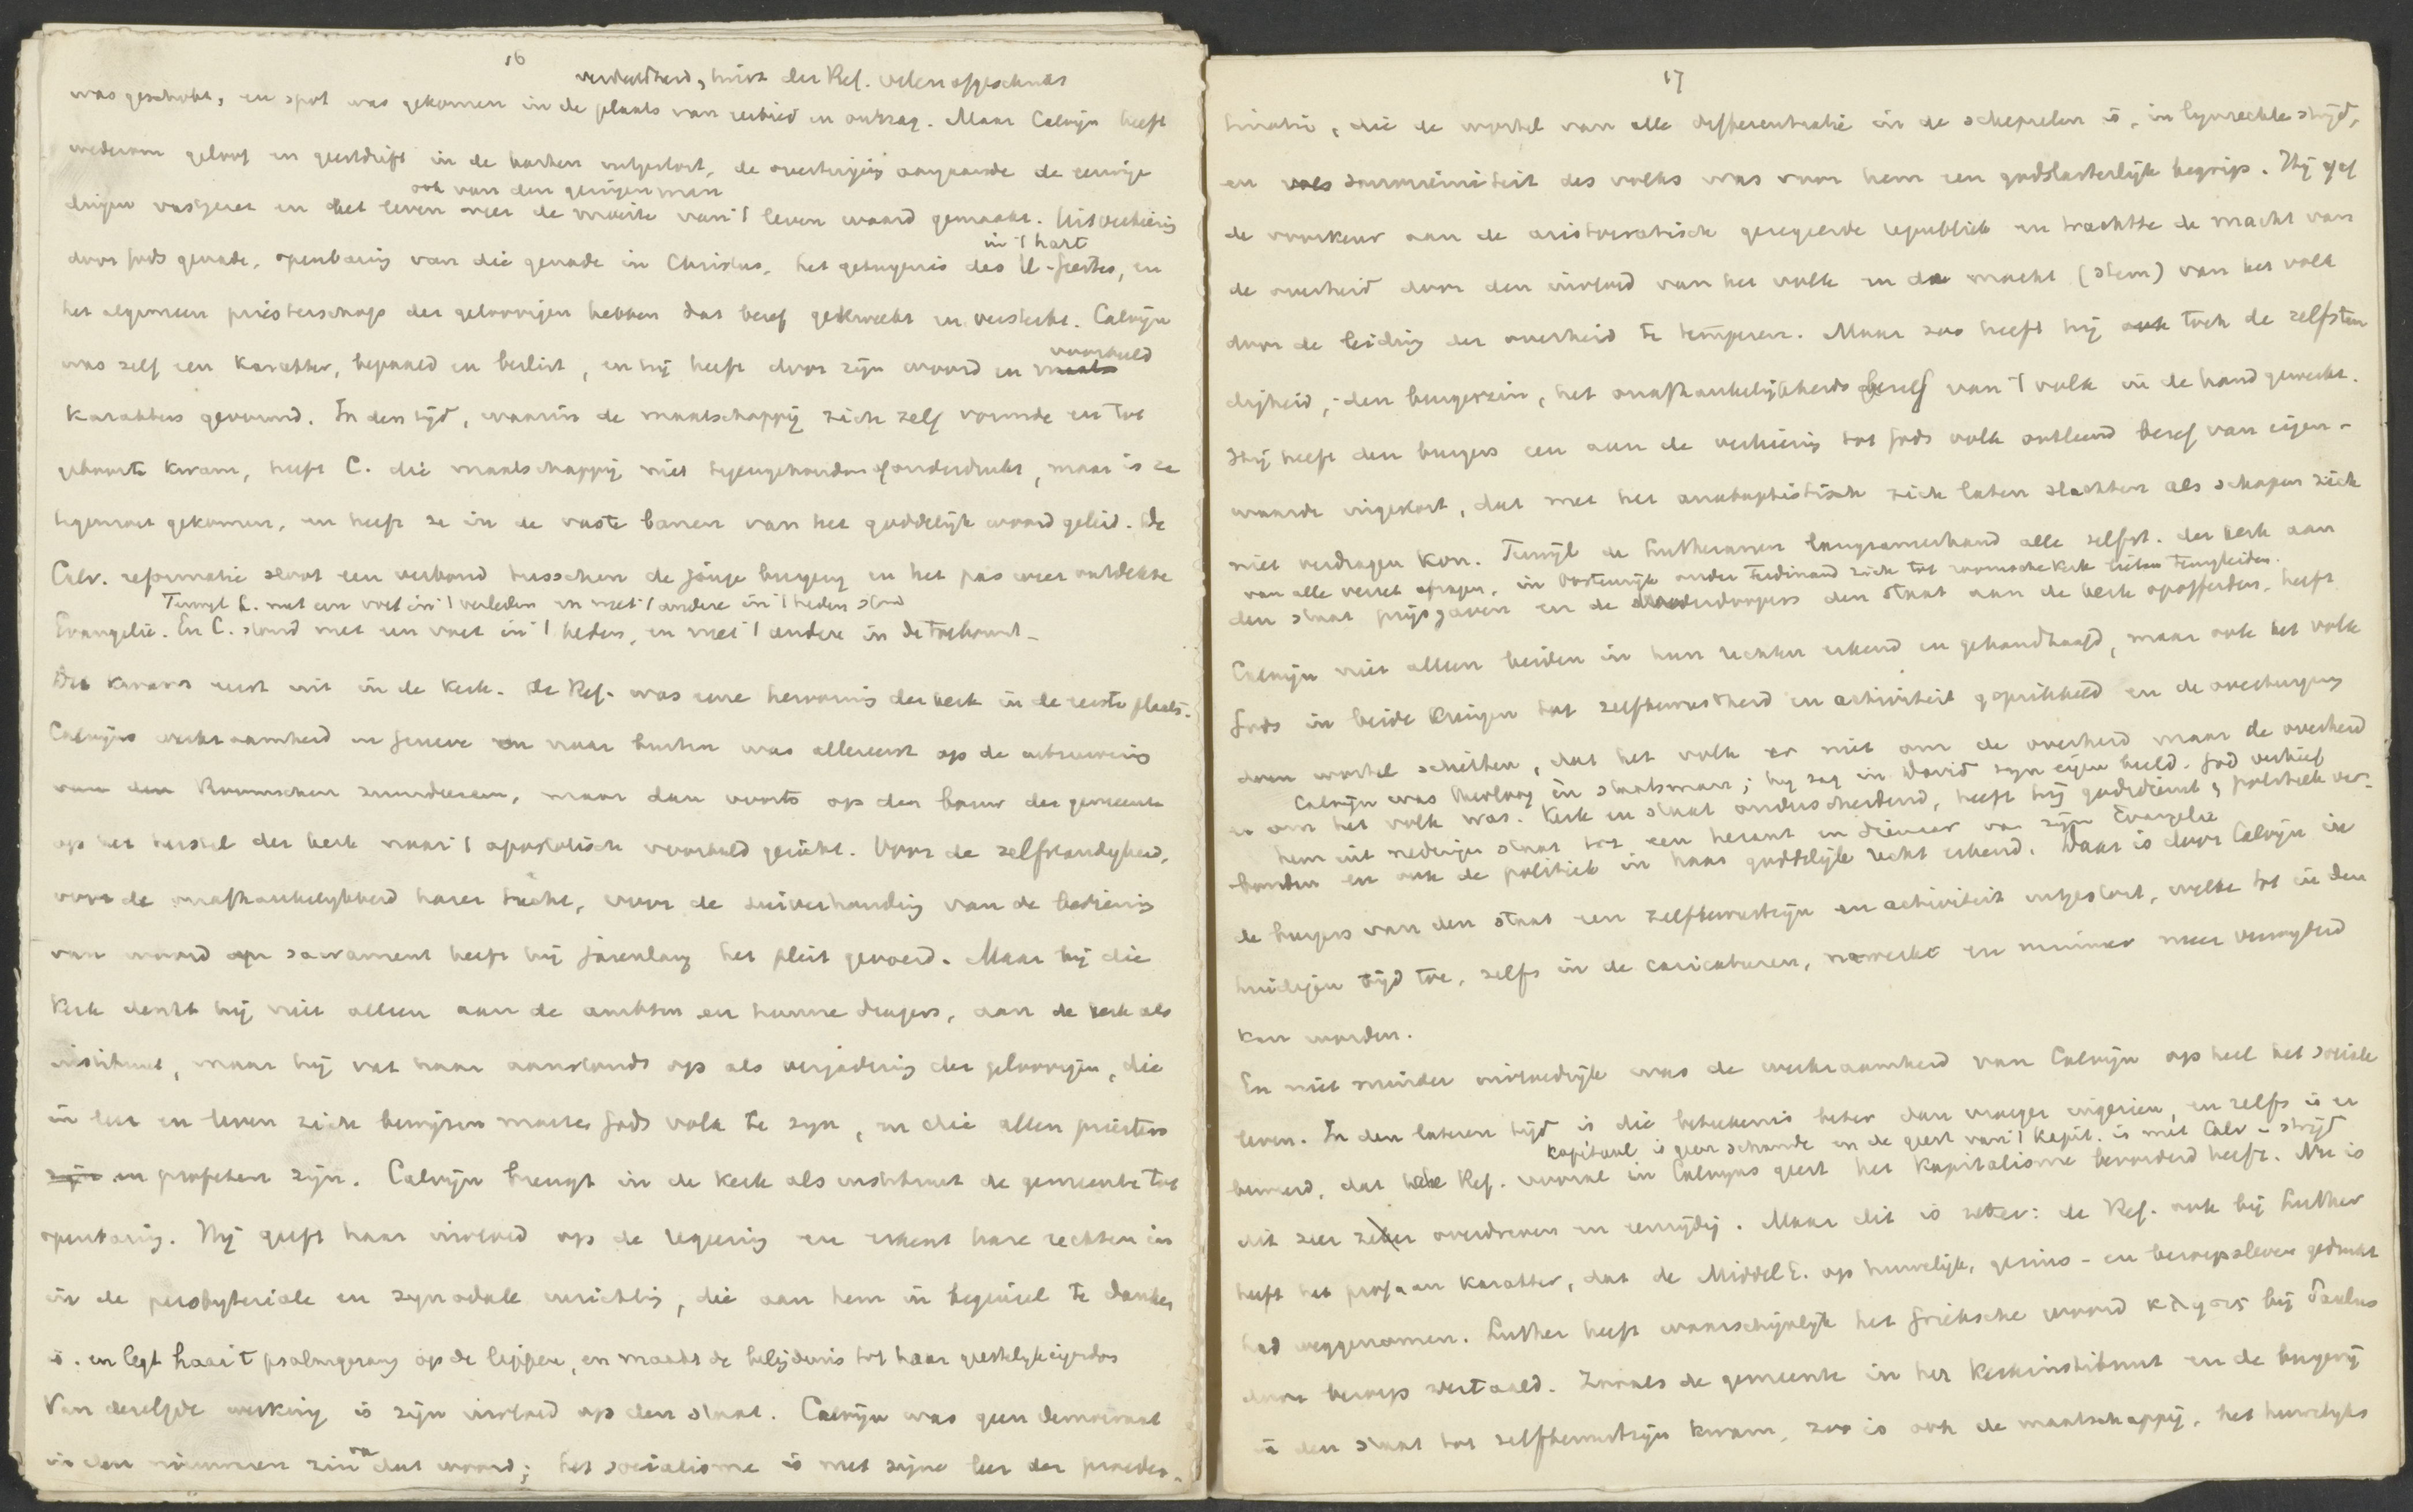 16
verdeeldheid, twist der Ref. velen afgeschrikt
was geschokt, en spot was gekomen in de plaats van eerbied en ontzag. Maar Calvijn heeft
wederom geloof en geestdrift in de harten uitgestort, de overtuiging aangaande de eeuwige
ook van den geringen man
dingen vastgezet en het leven weer de moeite van 't leven waard gemaakt. Uitverkiezing
in 't hart
door Gods genade, openbaring van die genade in Christus, het getuigenis des H. Geestes, en
het algemeen priesterschap der geloovigen hebben dat besef gekweekt en versterkt. Calvijn
voorbeeld
was zelf een karakter, bepaald en beslist, en hij heeft door zijn woord en
karakters gevormd. In den tijd, waarin de maatschappij zich zelf vormde en tot
geboorte kwam, heeft C. die maatschappij niet tegengehouden of onderdrukt, maar is ze
tegemoet gekomen, en heeft ze in de vaste banen van het goddelijk woord geleid. De
Calv. reformatie sloot een verbond tusschen de jonge burgerij en het pas weer ontdekte
Terwijl L. met een voet in 't verleden en met 't andere in 't heden stond
Evangelie. En C. stond met een voet in 't heden, en met 't andere in de toekomst.
Dit kwam eerst uit in de kerk. De Ref. was eene hervorming der kerk in de eerste plaats.
Calvijns werkzaamheid in Geneve en naar buiten was allereerst op de uitroeiing
van den Roomschen zuurdeesem, maar dan voorts op den bouw der gemeente
op het herstel der kerk naar 't apostolisch voorbeeld gericht. Voor de zelfstandigheid,
voor de onafhankelijkheid harer tucht, voor de zuiverhouding van de bediening
van woord en sacrament heeft hij jarenlang het pleit gevoerd. Maar bij die
kerk denkt hij niet alleen aan de ambten en hunne dragers, aan de kerk als
instituut, maar hij vat haar aanstonds op als vergadering der geloovigen, die
in leer en leven zich bewijzen moeten Gods volk te zijn, en die allen priesters
zijn en profeten zijn. Calvijn brengt in de kerk als instituut de gemeente tot
openbaring. Hij geeft haar invloed op de regeering en erkent hare rechten in
in de presbyteriale en synodale inrichting, die aan hem in beginsel te danken
is. en legt haar 't psalmgezang op de lippen, en maakt de belijdenis tot haar geestelijk eigendom
Van dezelfde werking is zijn invloed op den staat. Calvijn was geen democraat
van
in den nieuweren zin dat woord; het socialisme is met zijne leer der praedes-
17
tinatie, die de wortel van alle differentiatie in de schepselen is, in lijnrechte strijd,
en souvereiniteit des volks was voor hem een godslasterlijk begrip. Hij gaf
de voorkeur aan de aristocratisch geregeerde republiek en trachtte de macht van
de overheid door den invloed van het volk en de macht (stem) van het volk
door de leiding der overheid te temperen. Maar zoo heeft hij ook toch de zelfstan
digheid, den burgerzin, het onafhankelijkheids besef van 't volk in de hand gewerkt.
Hij heeft den burgers een aan de verkiezing tot Gods volk ontleend besef van eigen-
waarde ingestort, dat met het anabaptistisch zich laten slachten als schapen zich
niet verdragen kon. Terwijl de Lutheranen langzamerhand alle zelfst. der kerk aan
van alle verzet afzagen, in Oostenrijk onder Ferdinand zich tot roomsche kerk lieten terugleiden.
den staat prijsgaven en de wederdoopers den staat aan de kerk opofferden, heeft
Calvijn niet alleen beiden in hun rechten erkend en gehandhaafd, maar ook het volk
Gods in beide kringen tot zelfbewustheid en activiteit geprikkeld en de overtuiging
doen wortel schieten, dat het volk er niet om de overheid maar de overheid
Calvijn was theoloog en staatsman; hij zag in David zijn eigen beeld. God verhief
er om het volk was. Kerk en staat onderscheidend, heeft hij godsdienst & politiek ver-
hem uit nederigen staat tot een heraut en dienaar van zijn Evangelie
bonden en ook de politiek in haar goddelijk recht erkend. Daar is door Calvijn in
de burgers van den staat een zelfbewustzijn en activiteit uitgestort, welke tot in den
huidigen tijd toe, zelfs in de caricaturen, nawerkt en nimmer meer vernietigd
kan worden.
En niet minder invloedrijk was de werkzaamheid van Calvijn op heel het sociale
leven. In den lateren tijd is die beteekenis beter dan vroeger ingezien, en zelfs is er
kapitaal is geen schande en de geest van 't kapit. is met Calv in strijd
beweerd, dat de Ref. vooral in Calvijns geest het kapitalisme bevorderd heeft. Nu is
dit zeer zeker overdreven en eenzijdig. Maar dit is zeker: de Ref. ook bij Luther
heeft het profaan karakter, dat de MiddelE. op huwelijk, gezins- en beroepsleven gedrukt
had weggenomen. Luther heeft waarschijnlijk het Grieksche woord κλησις bij Paulus
door beroep vertaald. Zooals de gemeente in het kerkinstituut en de burgerij
in den staat tot zelfbewustzijn kwam, zoo is ook de maatschappij, het huwelijks